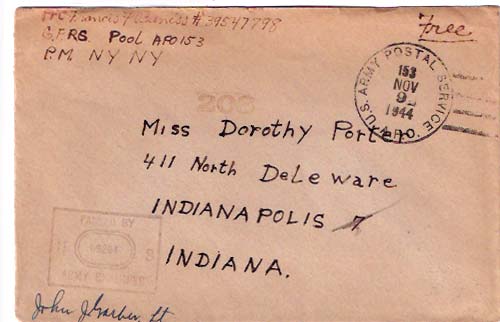 PFC # 39547798
Free
G.F.R.S Pool APO 153
P.M. NY NY
U.S. ARMY POSTAL SERVICE
153
NOV
9
1944
A.P.O.
208
Miss Dorothy Porter
411 North Deleware
INDIANAPOLIS 7
INDIANA.
PASSED BY
ARMY EXAMINER
John J Garber Lt